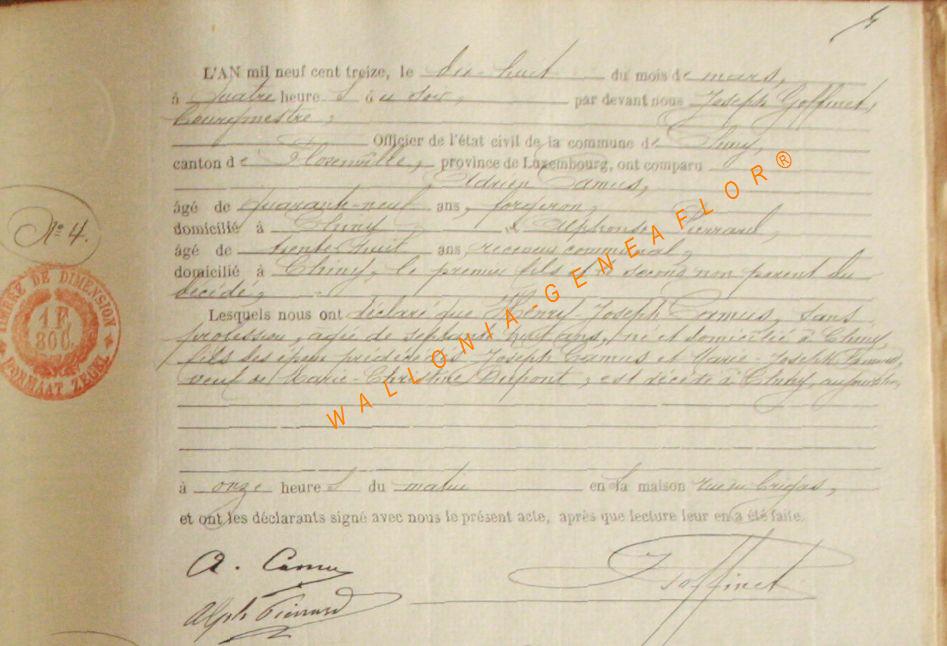 L'AN mil neuf cent treize, le dix-huit du mois de mars,
à quatre heures du soir, par devant nous Joseph Goffinet,
bourgmestre,
Officier de l'état civil de la commune de Chiny,
canton de Florenville, province de Luxembourg, ont comparu
Adrien Camus,
âgé de quarante-neuf ans, forgeron,
domicilié à Chiny et Alphonse Pierrard,
âgé de trente huit ans, receveur communal,
domicilié à Chiny, le premier fils le second non parent du
décédé,
Lesquels nous ont déclaré que Henry-Joseph Camus, sans
profession, âgé de septante huit ans, né et domicilié à Chiny,
fils des époux prédécédés Joseph Camus et Marie-Joseph
veuf de Marie-Christine Dupont, est décédé à Chiny, aujourd'hui,
à onze heures du matin en la maison rue
et ont les déclarants signé avec nous le présent acte, après que lecture leur en a été faite.
A. Camus
Goffinet
Alph Pierrard
No 4.
TIMBRE DE DIMENSION
1 F
30 C.
FORMAAT ZEGEL
WALLONIA-GENEAFLOR®